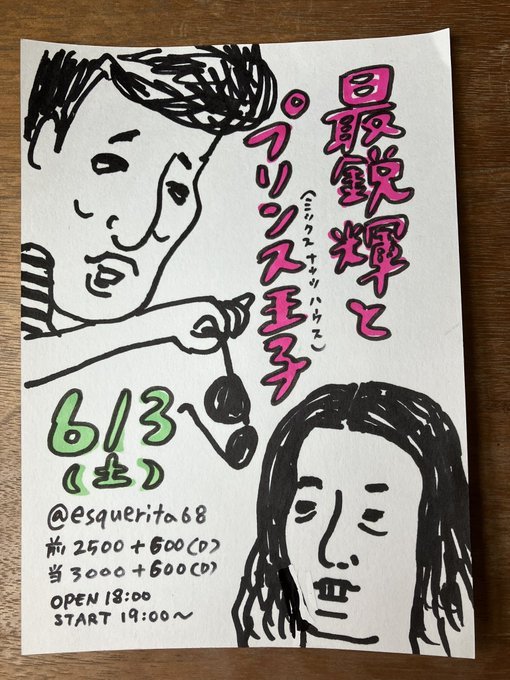 最鋭輝と
プリンス王子
(ミックスナッツハウス)
6/3
(土)
@esquerita68
前 2500+600(D)
当 3000+600(D)
OPEN 18:00
START 19:00~